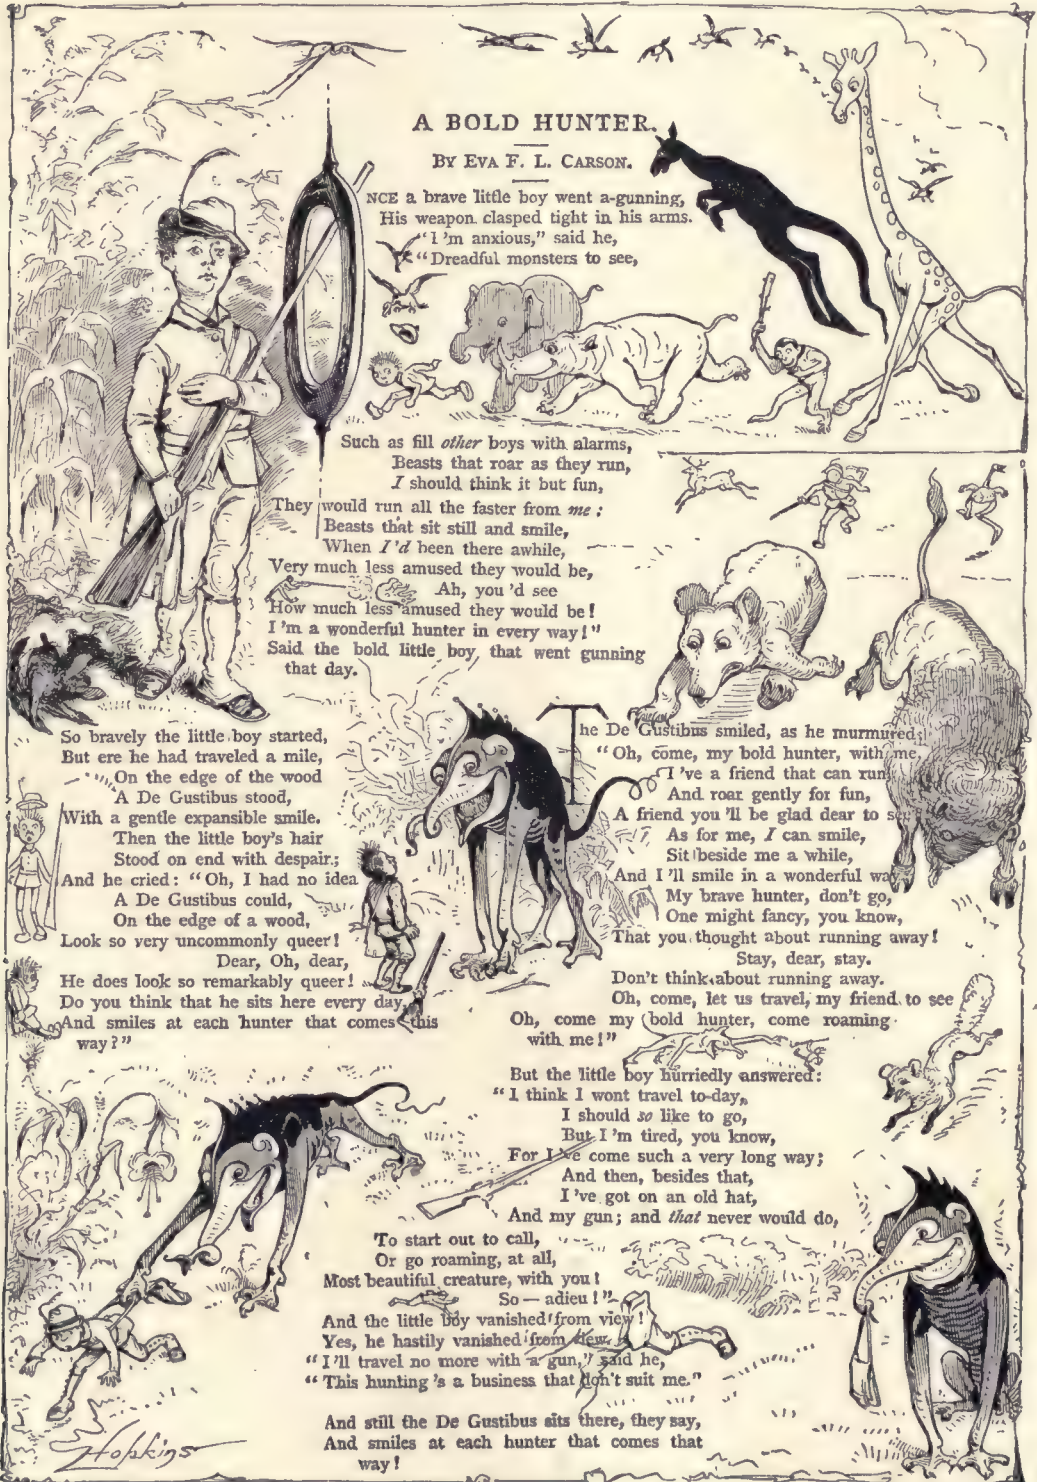 A BOLD HUNTER.
BY EVA F. L. CARSON.
ONCE a brave little boy went a-gunning,
His weapon clasped tight in his arms.
"I 'm anxious," said he,
"Dreadful monsters to see,
Such as fill other boys with alarms,
Beasts that roar as they run,
I should think it but fun,
They would run all the faster from me ;
Beasts that sit still and smile,
When I'd been there awhile,
Very much less amused they would be,
Ah, you 'd see
How much less amused they would be !
I 'm a wonderful hunter in every way ! "
Said the bold little boy, that went gunning
that day.
So bravely the little boy started,
But ere he had traveled a mile,
On the edge of the wood
A De Gustibus stood,
With a gentle expansible smile.
Then the little boy's hair
Stood on end with despair ;
And he cried : "Oh, I had no idea
A De Gustibus could,
On the edge of a wood,
Look so very uncommonly queer !
Dear, Oh, dear,
He does look so remarkably queer !
Do you think that he sits here every day,
And smiles at each hunter that comes this
way ? "
The De Gustibus smiled, as he murmured :
"Oh, come, my bold hunter, with me,
I 've a friend that can run
And roar gently for fun,
A friend you 'll be glad dear to see
As for me, I can smile,
Sit beside me a while,
And I 'll smile in a wonderful way
My brave hunter, don't go,
One might fancy, you know,
That you thought about running away !
Stay, dear, stay.
Don't think about running away.
Oh, come, let us travel, my friend to see
Oh, come my bold hunter, come roaming
with me ! "
But the little boy hurriedly answered :
"I think I wont travel to-day,
I should so like to go,
But I 'm tired, you know,
For I 've come such a very long way ;
And then, besides that,
I 've got on an old hat,
And my gun ; and that never would do,
To start out to call,
Or go roaming, at all,
Most beautiful creature, with you !
So — adieu ! "
And the little boy vanished from view !
Yes, he hastily vanished from view.
"I 'll travel no more with a gun," said he,
"This hunting 's a business that don't suit me."
And still the De Gustibus sits there, they say,
And smiles at each hunter that comes that
way !
Hopkins